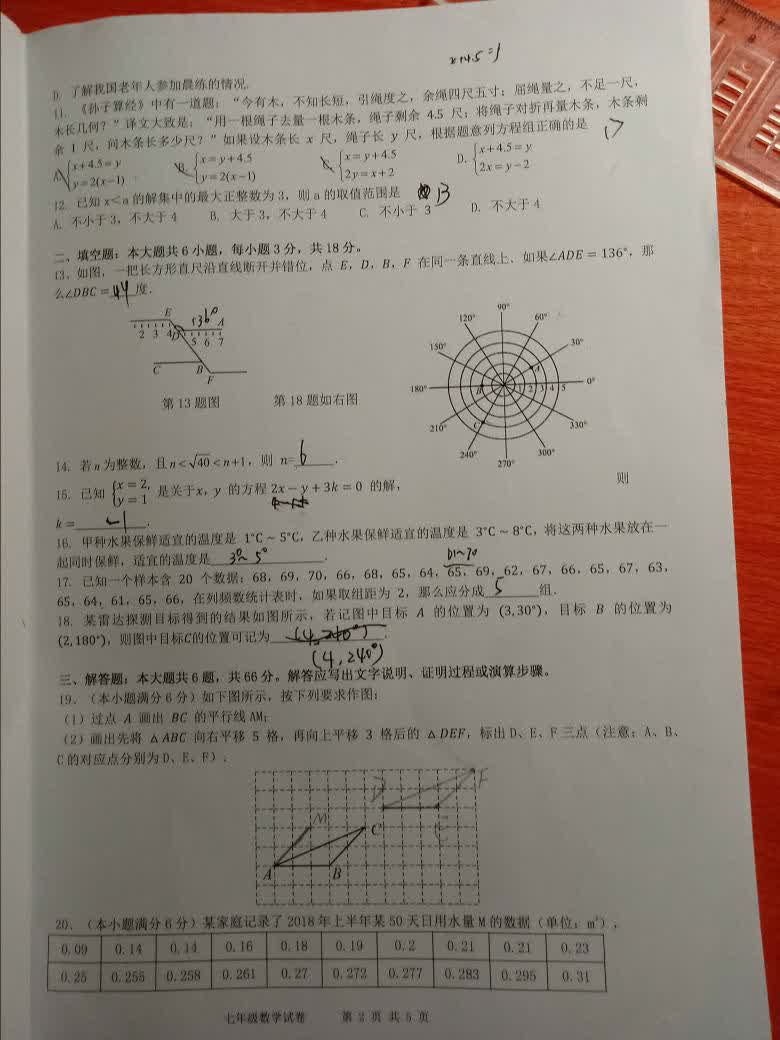 x+4.5=y
D. 了解我国老年人参加晨练的情况.
11. 《孙子算经》中有一道题:“今有木,不知长短,引绳度之,余绳四尺五寸;屈绳量之,不足一尺,
木长几何?”译文大致是:“用一根绳子去量一根木条,绳子剩余 4.5 尺;将绳子对折再量木条,木条剩
余 1 尺,问木条长多少尺?”如果设木条长 x 尺,绳子长 y 尺,根据题意列方程组正确的是 D
A. {x+4.5=y y=2(x-1) B. {x=y+4.5 y=2(x-1) C. {x=y+4.5 2y=x+2 D. {x+4.5=y 2x=y-2
12. 已知 x<a 的解集中的最大正整数为 3,则 a 的取值范围是 B
A. 不小于 3,不大于 4 B. 大于 3,不大于 4 C. 不小于 3 D. 不大于 4
二、填空题:本大题共 6 小题,每小题 3 分,共 18 分。
13. 如图,一把长方形直尺沿直线断开并错位,点 E,D,B,F 在同一条直线上. 如果∠ADE=136°,那
么∠DBC=44度.
E 136° A
2 3 4 D 5 6 7
C B
F
90°
120° 60°
150° 30°
180° B A 1 2 3 4 5 0°
C
210° 330°
240° 300°
270°
第 13 题图 第 18 题如右图
14. 若 n 为整数,且 n<√40<n+1,则 n=6.
15. 已知 {x=2, y=1 是关于x,y 的方程 2x-y+3k=0 的解, 则
k=-1.
16. 甲种水果保鲜适宜的温度是 1°C~5°C,乙种水果保鲜适宜的温度是 3°C~8°C,将这两种水果放在一
起同时保鲜,适宜的温度是 3°~5°.
61~70
17. 已知一个样本含 20 个数据:68,69,70,66,68,65,64,65,69,62,67,66,65,67,63,
65,64,61,65,66,在列频数统计表时,如果取组距为 2,那么应分成 5 组.
18. 某雷达探测目标得到的结果如图所示,若记图中目标 A 的位置为 (3,30°),目标 B 的位置为
(2,180°),则图中目标C的位置可记为 (4,240°).
(4,240°)
三、解答题:本大题共 6 题,共 66 分。解答应写出文字说明、证明过程或演算步骤。
19. (本小题满分 6 分)如下图所示,按下列要求作图:
(1)过点 A 画出 BC 的平行线AM;
(2)画出先将 △ABC 向右平移 5 格,再向上平移 3 格后的 △DEF,标出 D、E、F 三点(注意:A、B、
C 的对应点分别为 D、E、F).
D F
M C E
A B
20. (本小题满分 6 分)某家庭记录了 2018 年上半年某 50 天日用水量 M 的数据(单位:m³),
0.09 0.14 0.14 0.16 0.18 0.19 0.2 0.21 0.21 0.23
0.25 0.255 0.258 0.261 0.27 0.272 0.277 0.283 0.295 0.31
七年级数学试卷 第 2 页 共 5 页